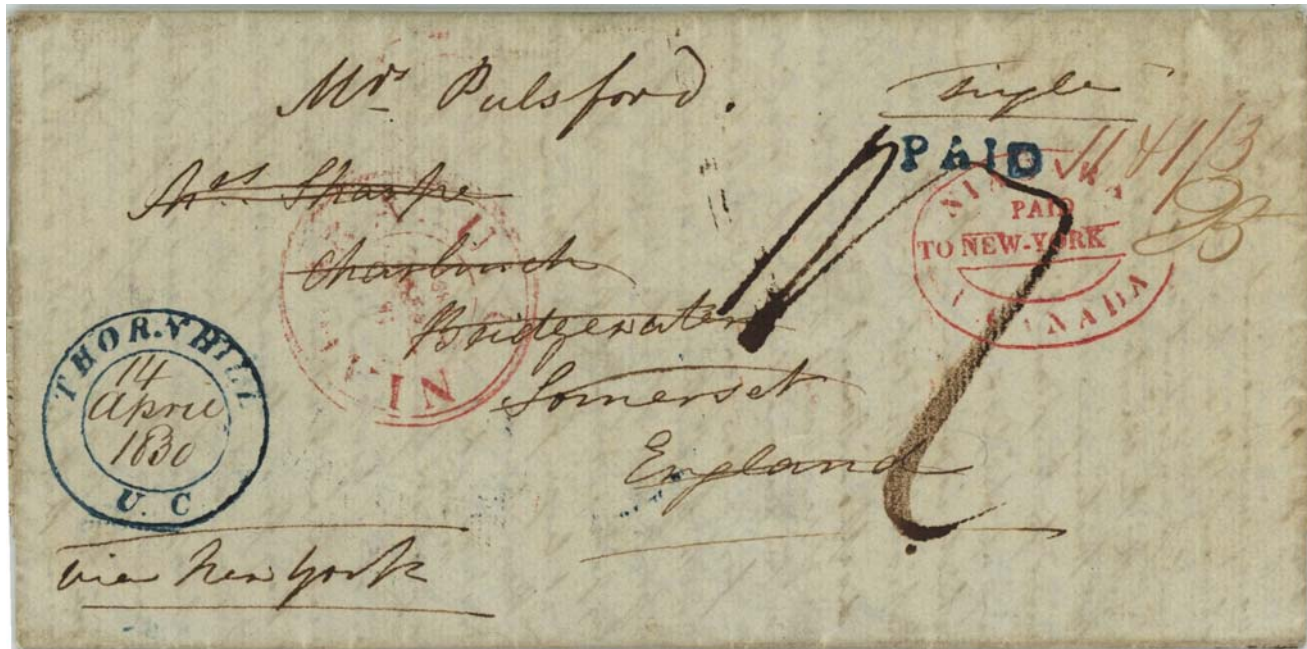 Mrs Pulsford.
Single
PAID
Mrs Sharpe
NIAGARA
PAID
TO NEW-YORK
U. CANADA
Charlinch
Bridgewater
Somerset
England
THORNHILL
14
April
1830
U. C
via New York